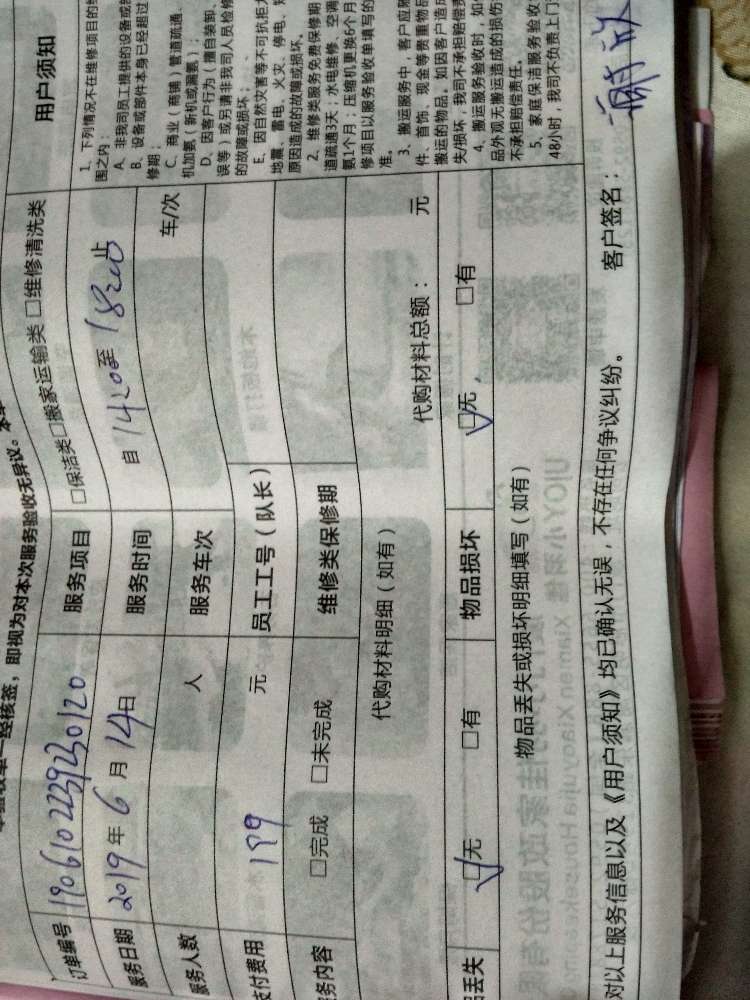 即视为对本次服务验收无异议。
订单编号 190610223923 0120 服务项目 □保洁类□搬家运输类 □维修清洗类
服务日期 2019年6月14日 服务时间 自 1420至1820止
服务人数 人 服务车次 车/次
支付费用 199 元 员工工号（队长）
务内容 □完成 □未完成 维修类保修期
代购材料明细（如有） 代购材料总额： 元
品丢失 ☑无 □有 物品损坏 ☑无 □有
物品丢失或损坏明细填写（如有）
对以上服务信息以及《用户须知》均已确认无误，不存在任何争议纠纷。 客户签名：
用户须知
1、下列情况不在维修项目的
围之内：
A、非我司员工提供的设备或
B、设备或部件本身已经超过
修期；
C、商业（商铺）管道疏通、
机加氨（新机或漏氨）；
D、因客户行为（擅自装卸、
误等）或另请非我司人员检修
的故障或损坏；
E、因自然灾害等不可抗拒
地震、蓄电、火灾、停电、
原因造成的故障或损坏。
2、维修类服务免费保修期
道疏通3天；水电维修、空调
氨1个月；压缩机更换6个月
修项目以服务验收单填写的
准。
3、搬运服务中，客户应
件、首饰、现金等贵重物品
搬运的物品。如因客户造成
失/损坏，我司不承担赔偿责
4、搬运服务验收时，如
品外观无搬运造成的损伤
不承担赔偿责任。
5、家庭保洁服务验收
48小时，我司不负责上门